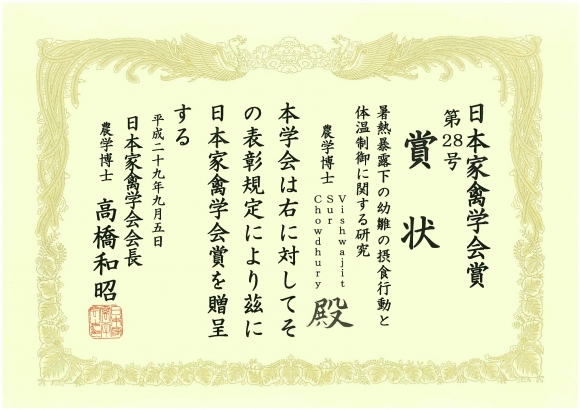 日本家禽学会賞
第28号
賞状
暑熱暴露下の幼雛の摂食行動と
体温制御に関する研究
農学博士
Vishwajit
Sur
Chowdhury
殿
本学会は右に対してそ
の表彰規定により茲に
日本家禽学会賞を贈呈
する
平成二十九年九月五日
日本家禽学会会長
農学博士 高橋和昭